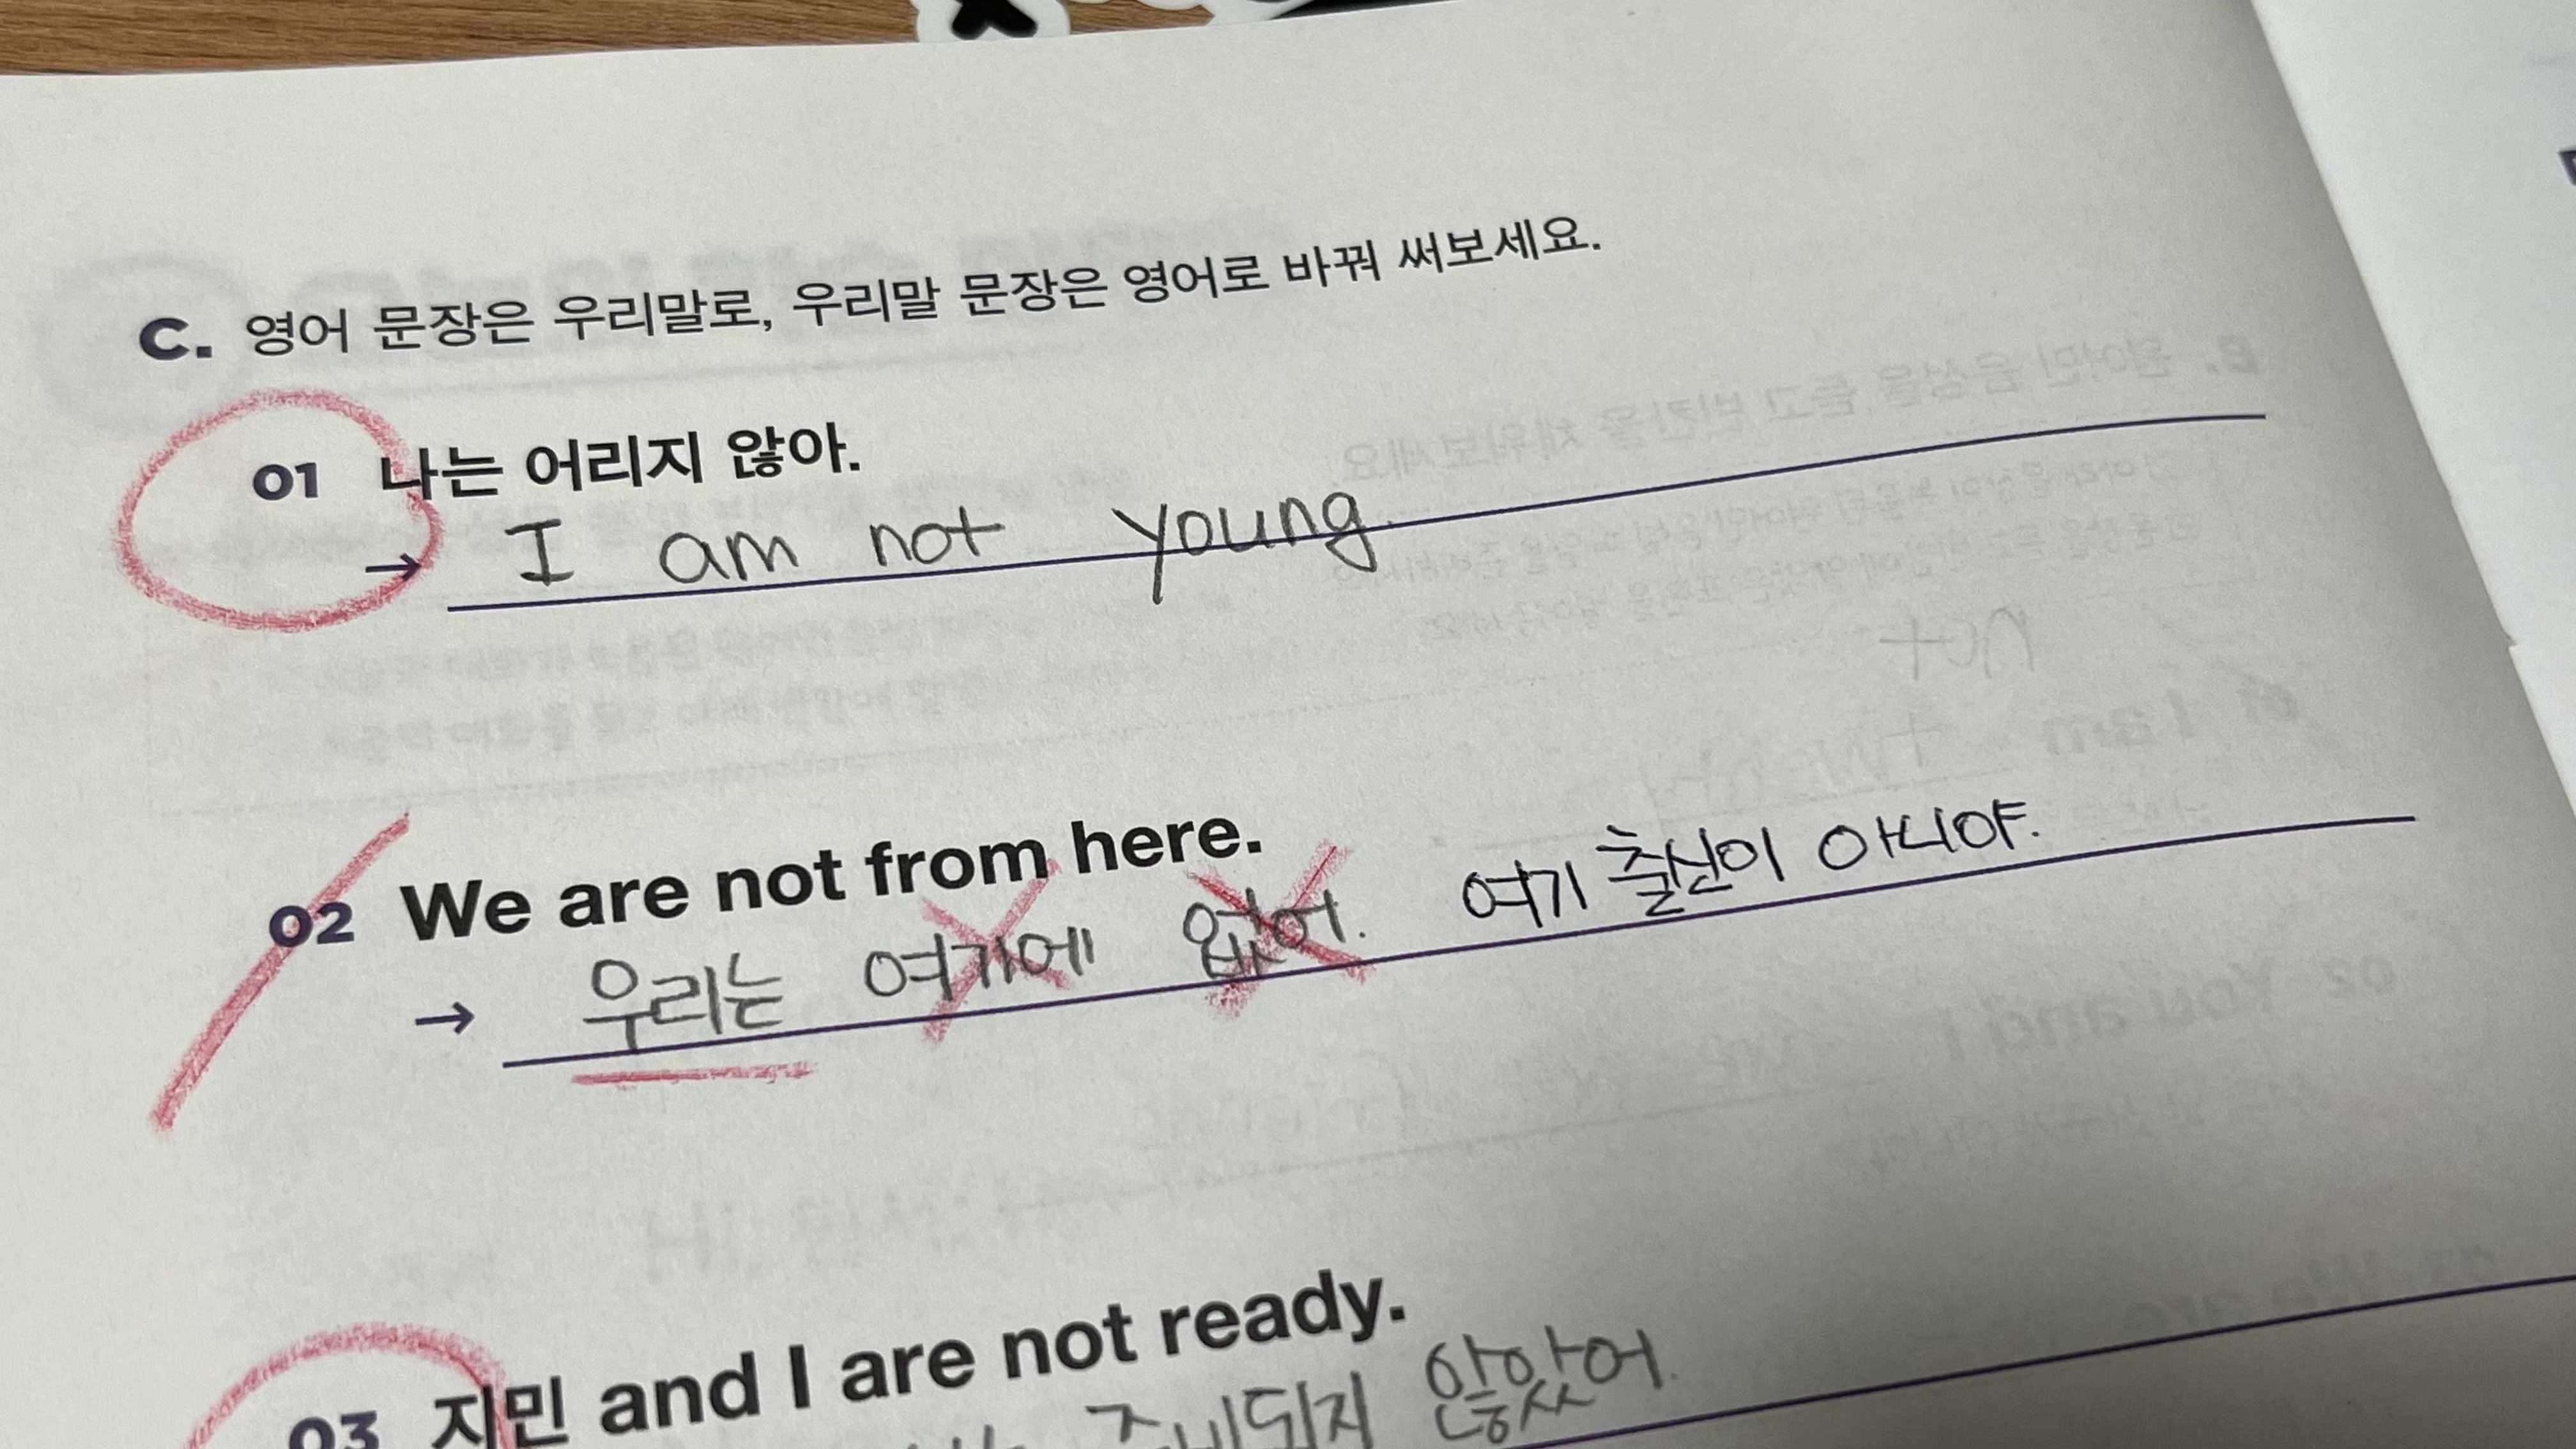 C. 영어 문장은 우리말로, 우리말 문장은 영어로 바꿔 써보세요.
01 나는 어리지 않아.
→ I am not young.
02 We are not from here.
→ 우리는 여기에 없어. 여기 출신이 아니야.
03 지민 and I are not ready.
준비되지 않았어.